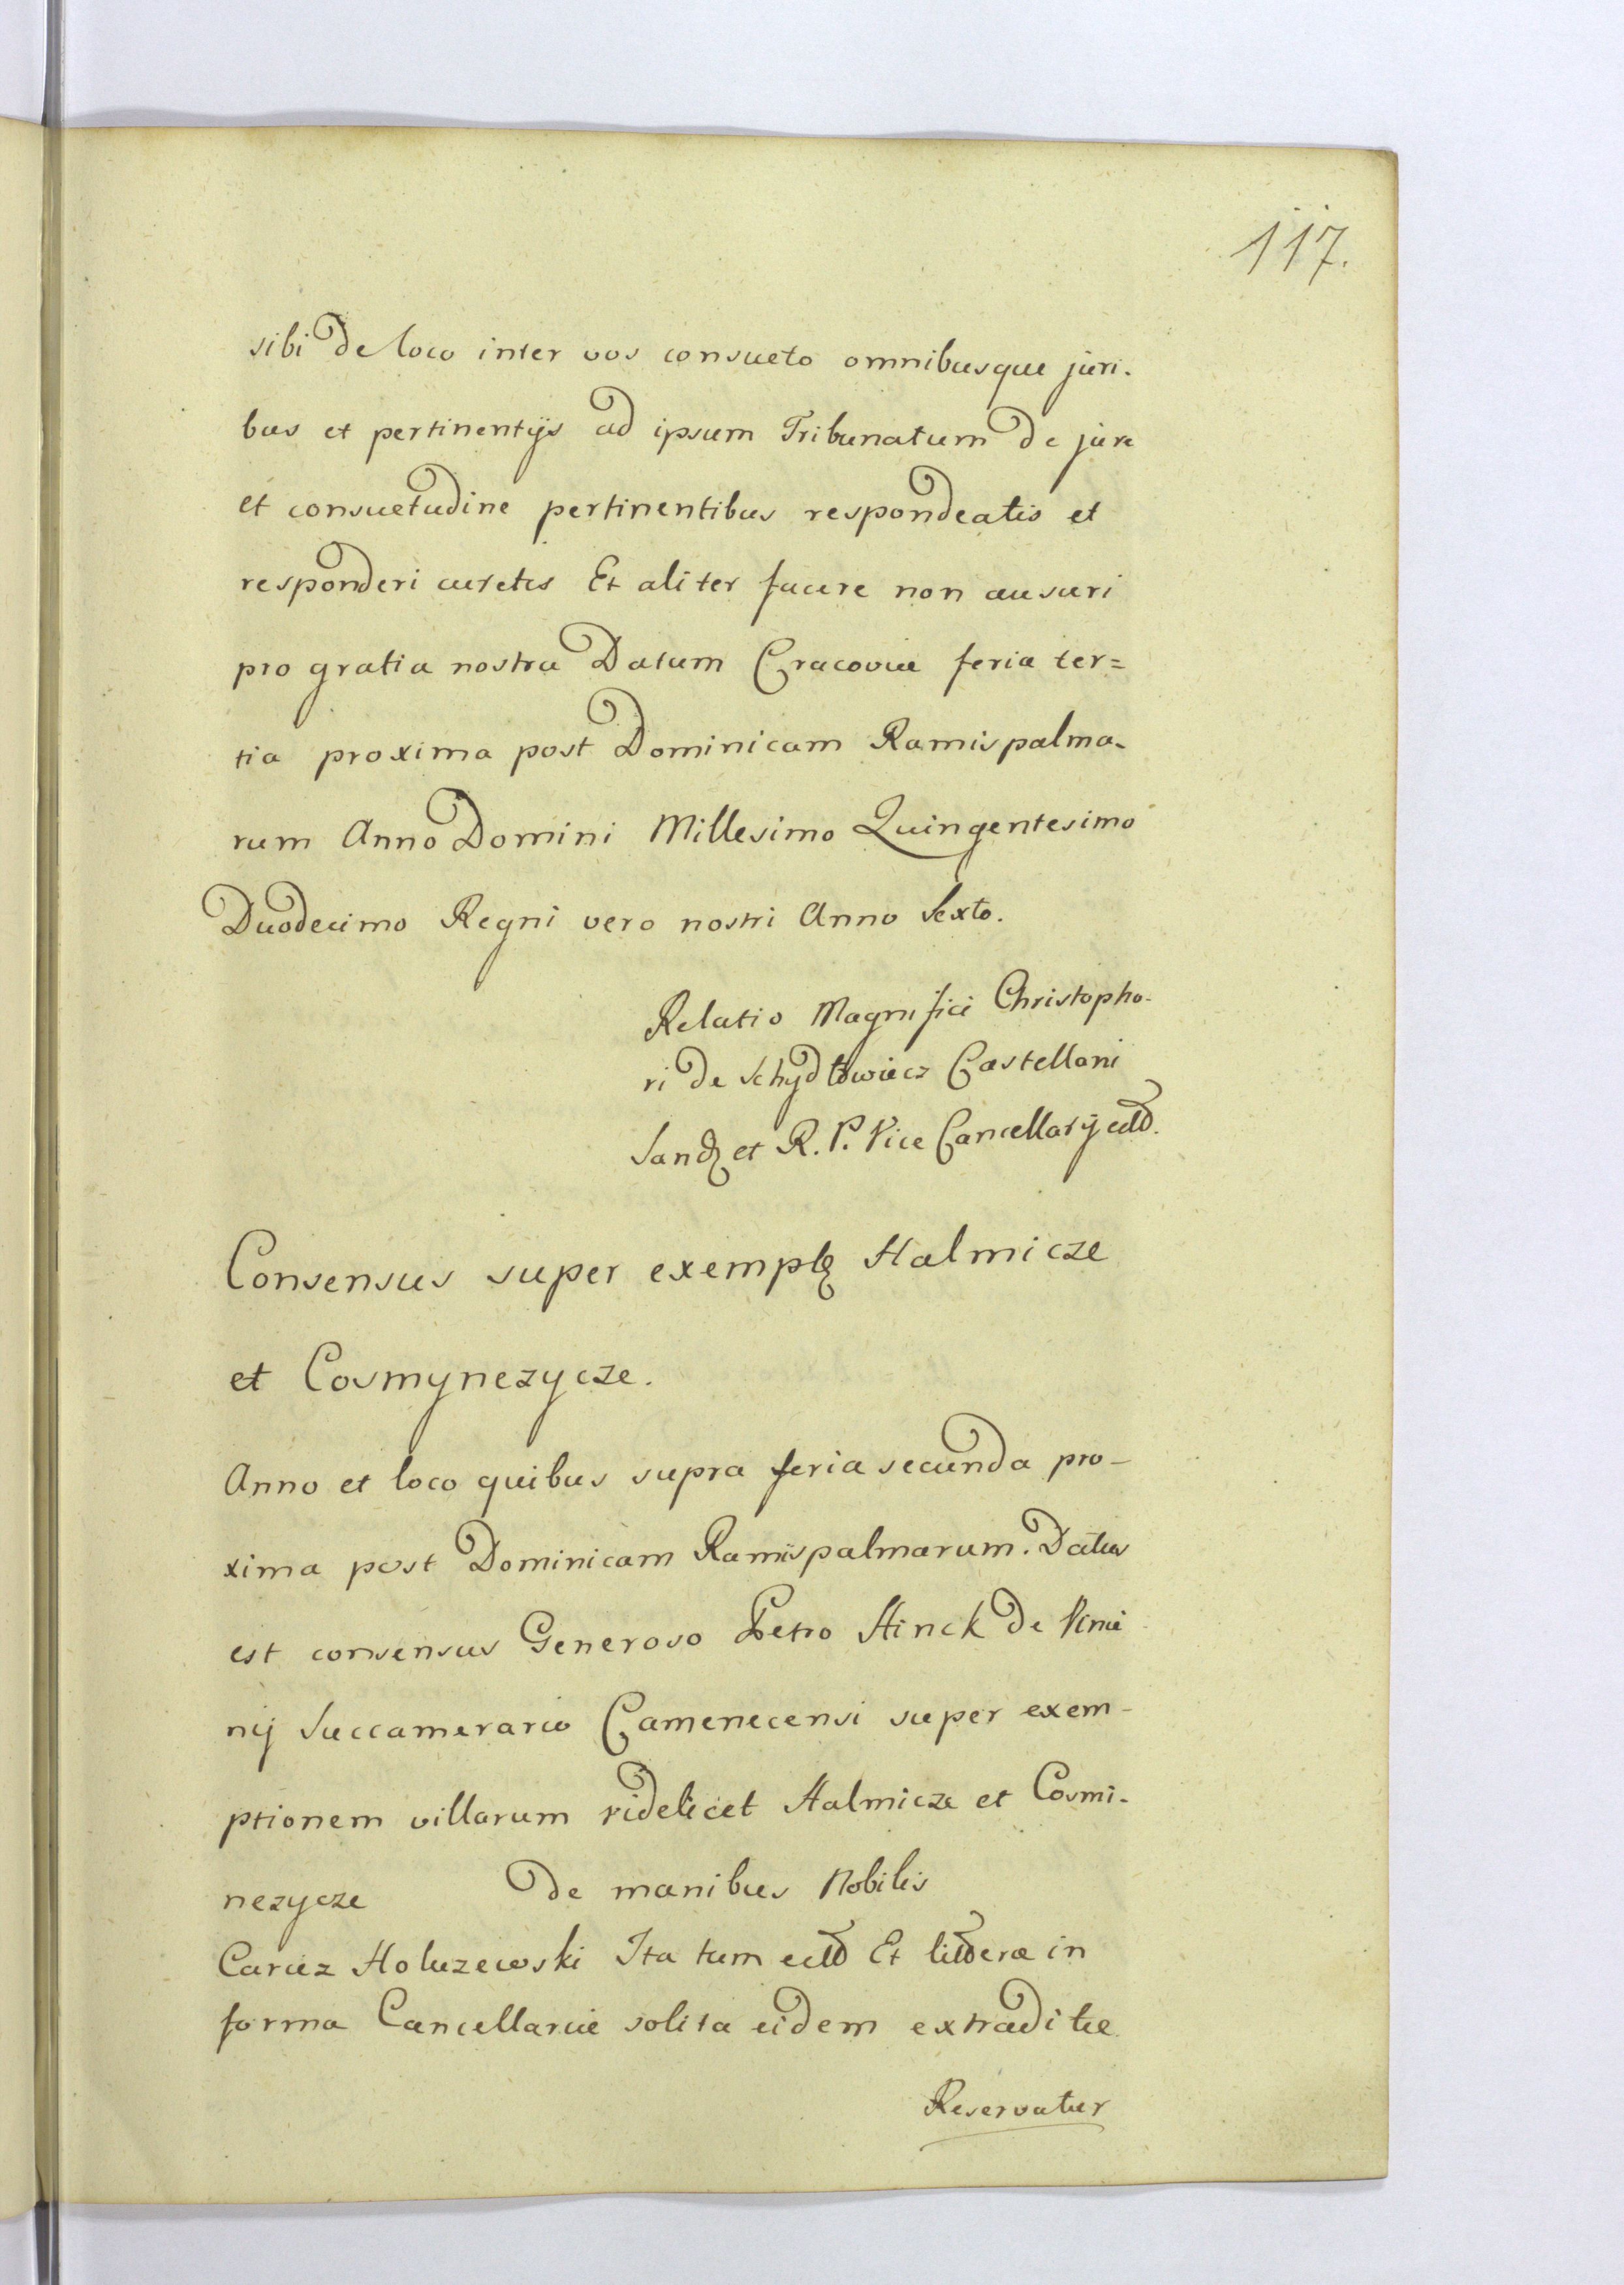 117.
sibi de loco inter vos consueto omnibusque juri-
bus et pertinentijs ad ipsum Tribunatum de jure
et consuetudine pertinentibus respondeatis et
responderi curetis Et aliter facere non ausuri
pro gratia nostra Datum Cracoviæ feria ter=
tia proxima post Dominicam Ramispalma-
rum Anno Domini Millesimo Quingentesimo
Duodecimo Regni vero nostri Anno Sexto.
Relatio Magnifici Christopho-
ri de Schydłowiecz Castellani
Sand et R. P. Vice Cancellarij
Consensus super exempt Halmicze
et Cosmynezycze.
Anno et loco quibus supra feria secunda pro-
xima post Dominicam Ramispalmarum. Datus
est consensus Generoso Petro Hinck de
Succamerario Camenecensi super exem-
ptionem villarum videlicet Halmicze et Cosmi-
nezycze de manibus Nobilis
Holuzewski Ita tum Et in
forma Cancellariæ solita eidem extraditæ
Reservatur